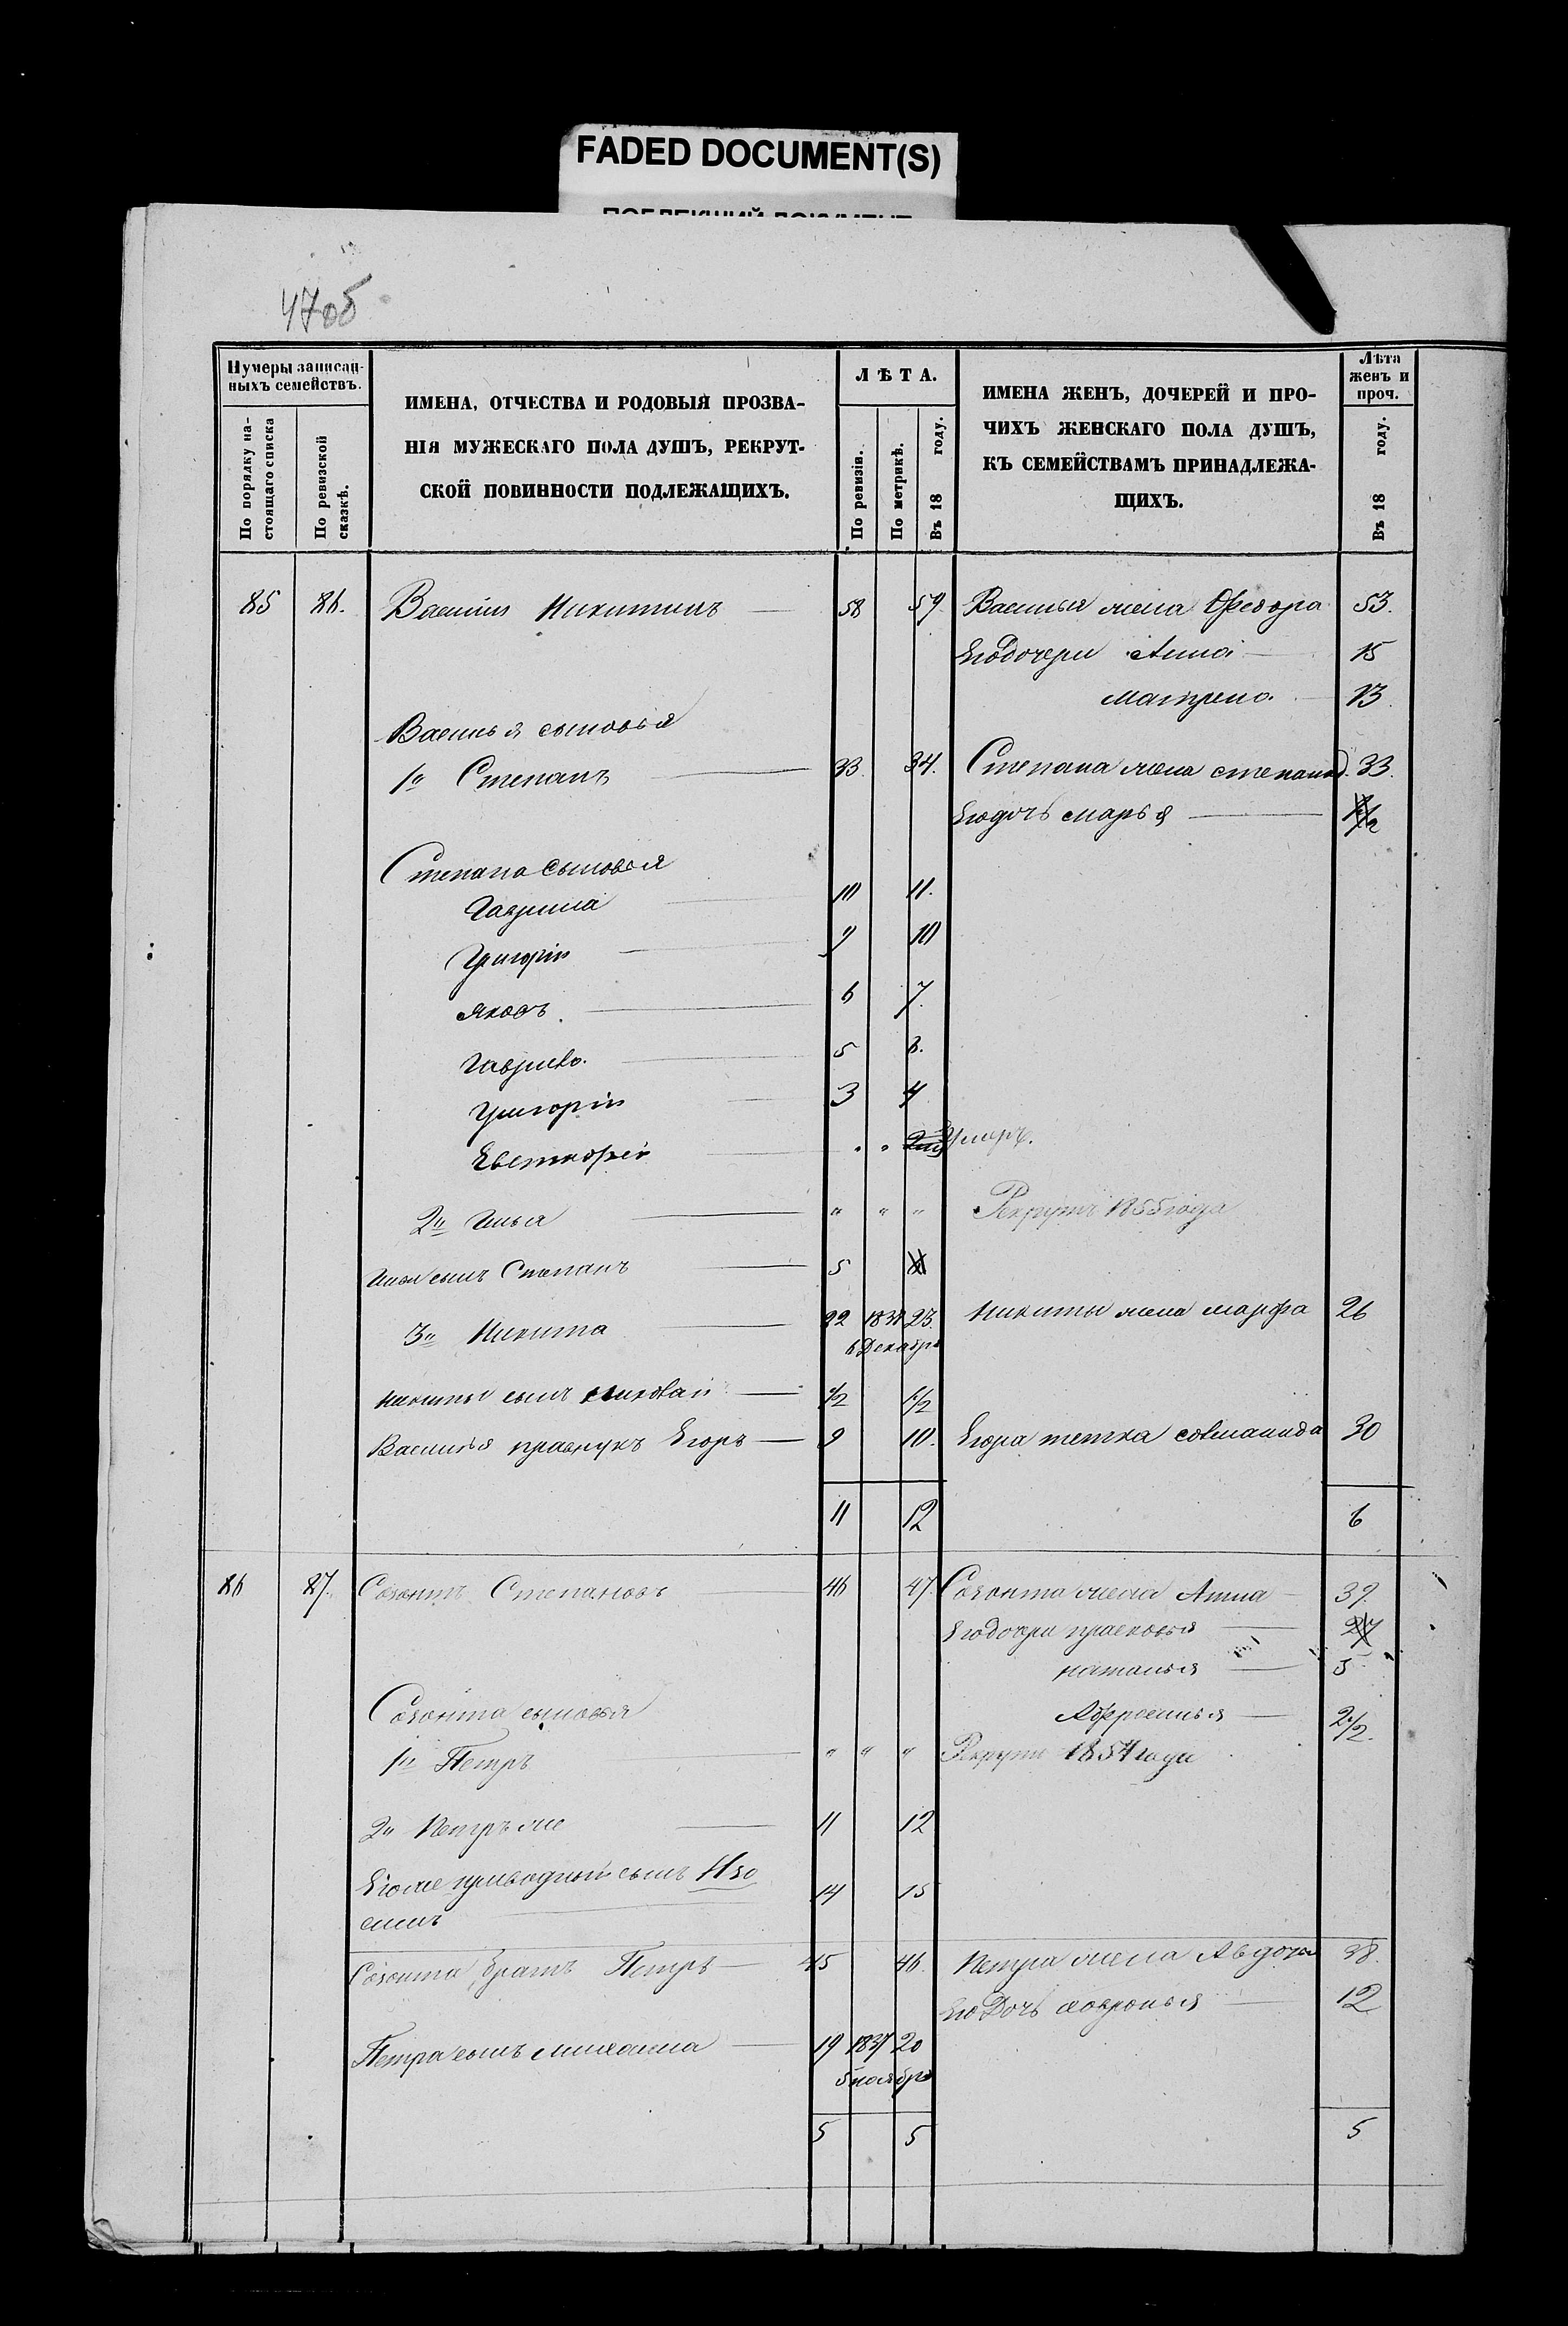 FADED DOCUMENT(S)
47об
Нумеры записан-
ныхъ семействъ.
По порядку на-
стоящаго списка
По ревизской
сказкѣ.
ИМЕНА, ОТЧЕСТВА И РОДОВЫЯ ПРОЗВА-
НІЯ МУЖЕСКАГО ПОЛА ДУШЪ, РЕКРУТ-
СКОЙ ПОВИННОСТИ ПОДЛЕЖАЩИХЪ.
ЛѢТА.
По ревизіи.
По метрикѣ.
Въ 18 году.
ИМЕНА ЖЕНЪ, ДОЧЕРЕЙ И ПРО-
ЧИХЪ ЖЕНСКАГО ПОЛА ДУШЪ,
КЪ СЕМЕЙСТВАМЪ ПРИНАДЛЕЖА-
ЩИХЪ.
Лѣта
женъ и
проч.
Въ 18 году.
85 86. Василій Никитинъ — 58 59 Василья жена Федора 53.
Егодочери Анна — 15
Матрена. — 13.
Василья сыновья
1й Степанъ — 33. 34. Степана жена степанид. 33.
Егодочь марья —
Степана сыновья
Гаврила — 10 11.
Григорій — 9 10
Яковъ. — 6 7.
Гаврило. — 5
Григорій — 3 4
умеръ.
2й Илья — " " " Рекрутъ 1855 года
Ильи сынъ Степанъ — 5
3й Никита — 22 23. Никиты жена марфа 26
6 Декабря
Никиты сынъ Николай — 1/2 1 1/2
Василья правнукъ Егоръ — 9 10. Егора тетка 30
11 12 6
86 87. Созонтъ Степановъ — 46 47. Созонта жена Анна — 39.
Егодочери прасковья —
наталья — 5
Созонта сыновья
— 2 1/2.
1й Петръ — " " " Рекрутъ 1854 года
2й Петръ же — 11 12
Его же приводной сынъ Изо
симъ — 14 15
Созонта братъ Петръ — 45 46. Петра жена Авдотья 38.
Его Дочь — 12
Петра сынъ михаила — 19 1837 20
5 ноября
5 5 5